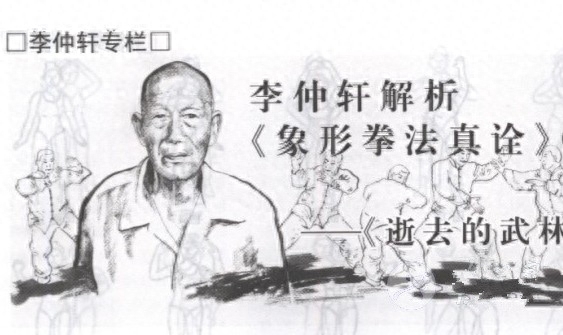 □李仲轩专栏□
李仲轩解析
《象形拳法真诠》
——《逝去的武林